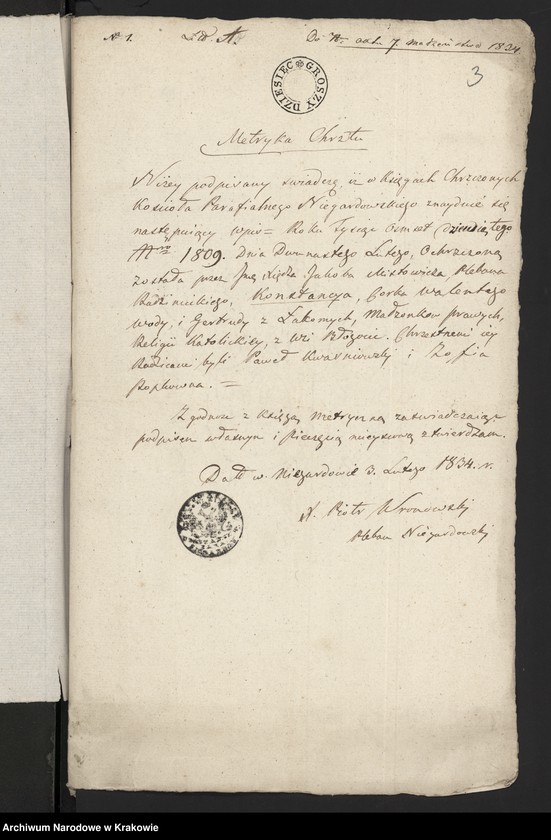 N. 1. Lit. A. Do N. akt. 7 małżeństwa 1834.
3
DZIESIĘC GROSZY
Metryka Chrztu
Niżey podpisany świadczę, iż w Księgach Chrzczonych
Kościoła Parafialnego Niegardowskiego znayduie się
następuiący wpis = Roku Tysiąc Ośmset Dziewiątego
1809. Dnia Dwunastego Lutego, Ochrzczona
została przez Jmę Xiędza Jakóba Mistowicza Plebana
Konstancya, Corka Walentego
Wody, i Gertrudy z Łakomych, Małżonków prawych,
Religii Katolickiey, z Wsi . Chrzestnemi iey
Rodzicami byli Paweł Kwaśniowski i Zofia
Bopkowna. =
Zgodno z Księgą Metryczną zaświadczaiąc
podpisem własnym i Pieczęcią ztwierdzam.
Datt w Niegardowie 3. Lutego 1834. r.
X. Piotr Wronowski
Pleban Niegardowski
Archiwum Narodowe w Krakowie